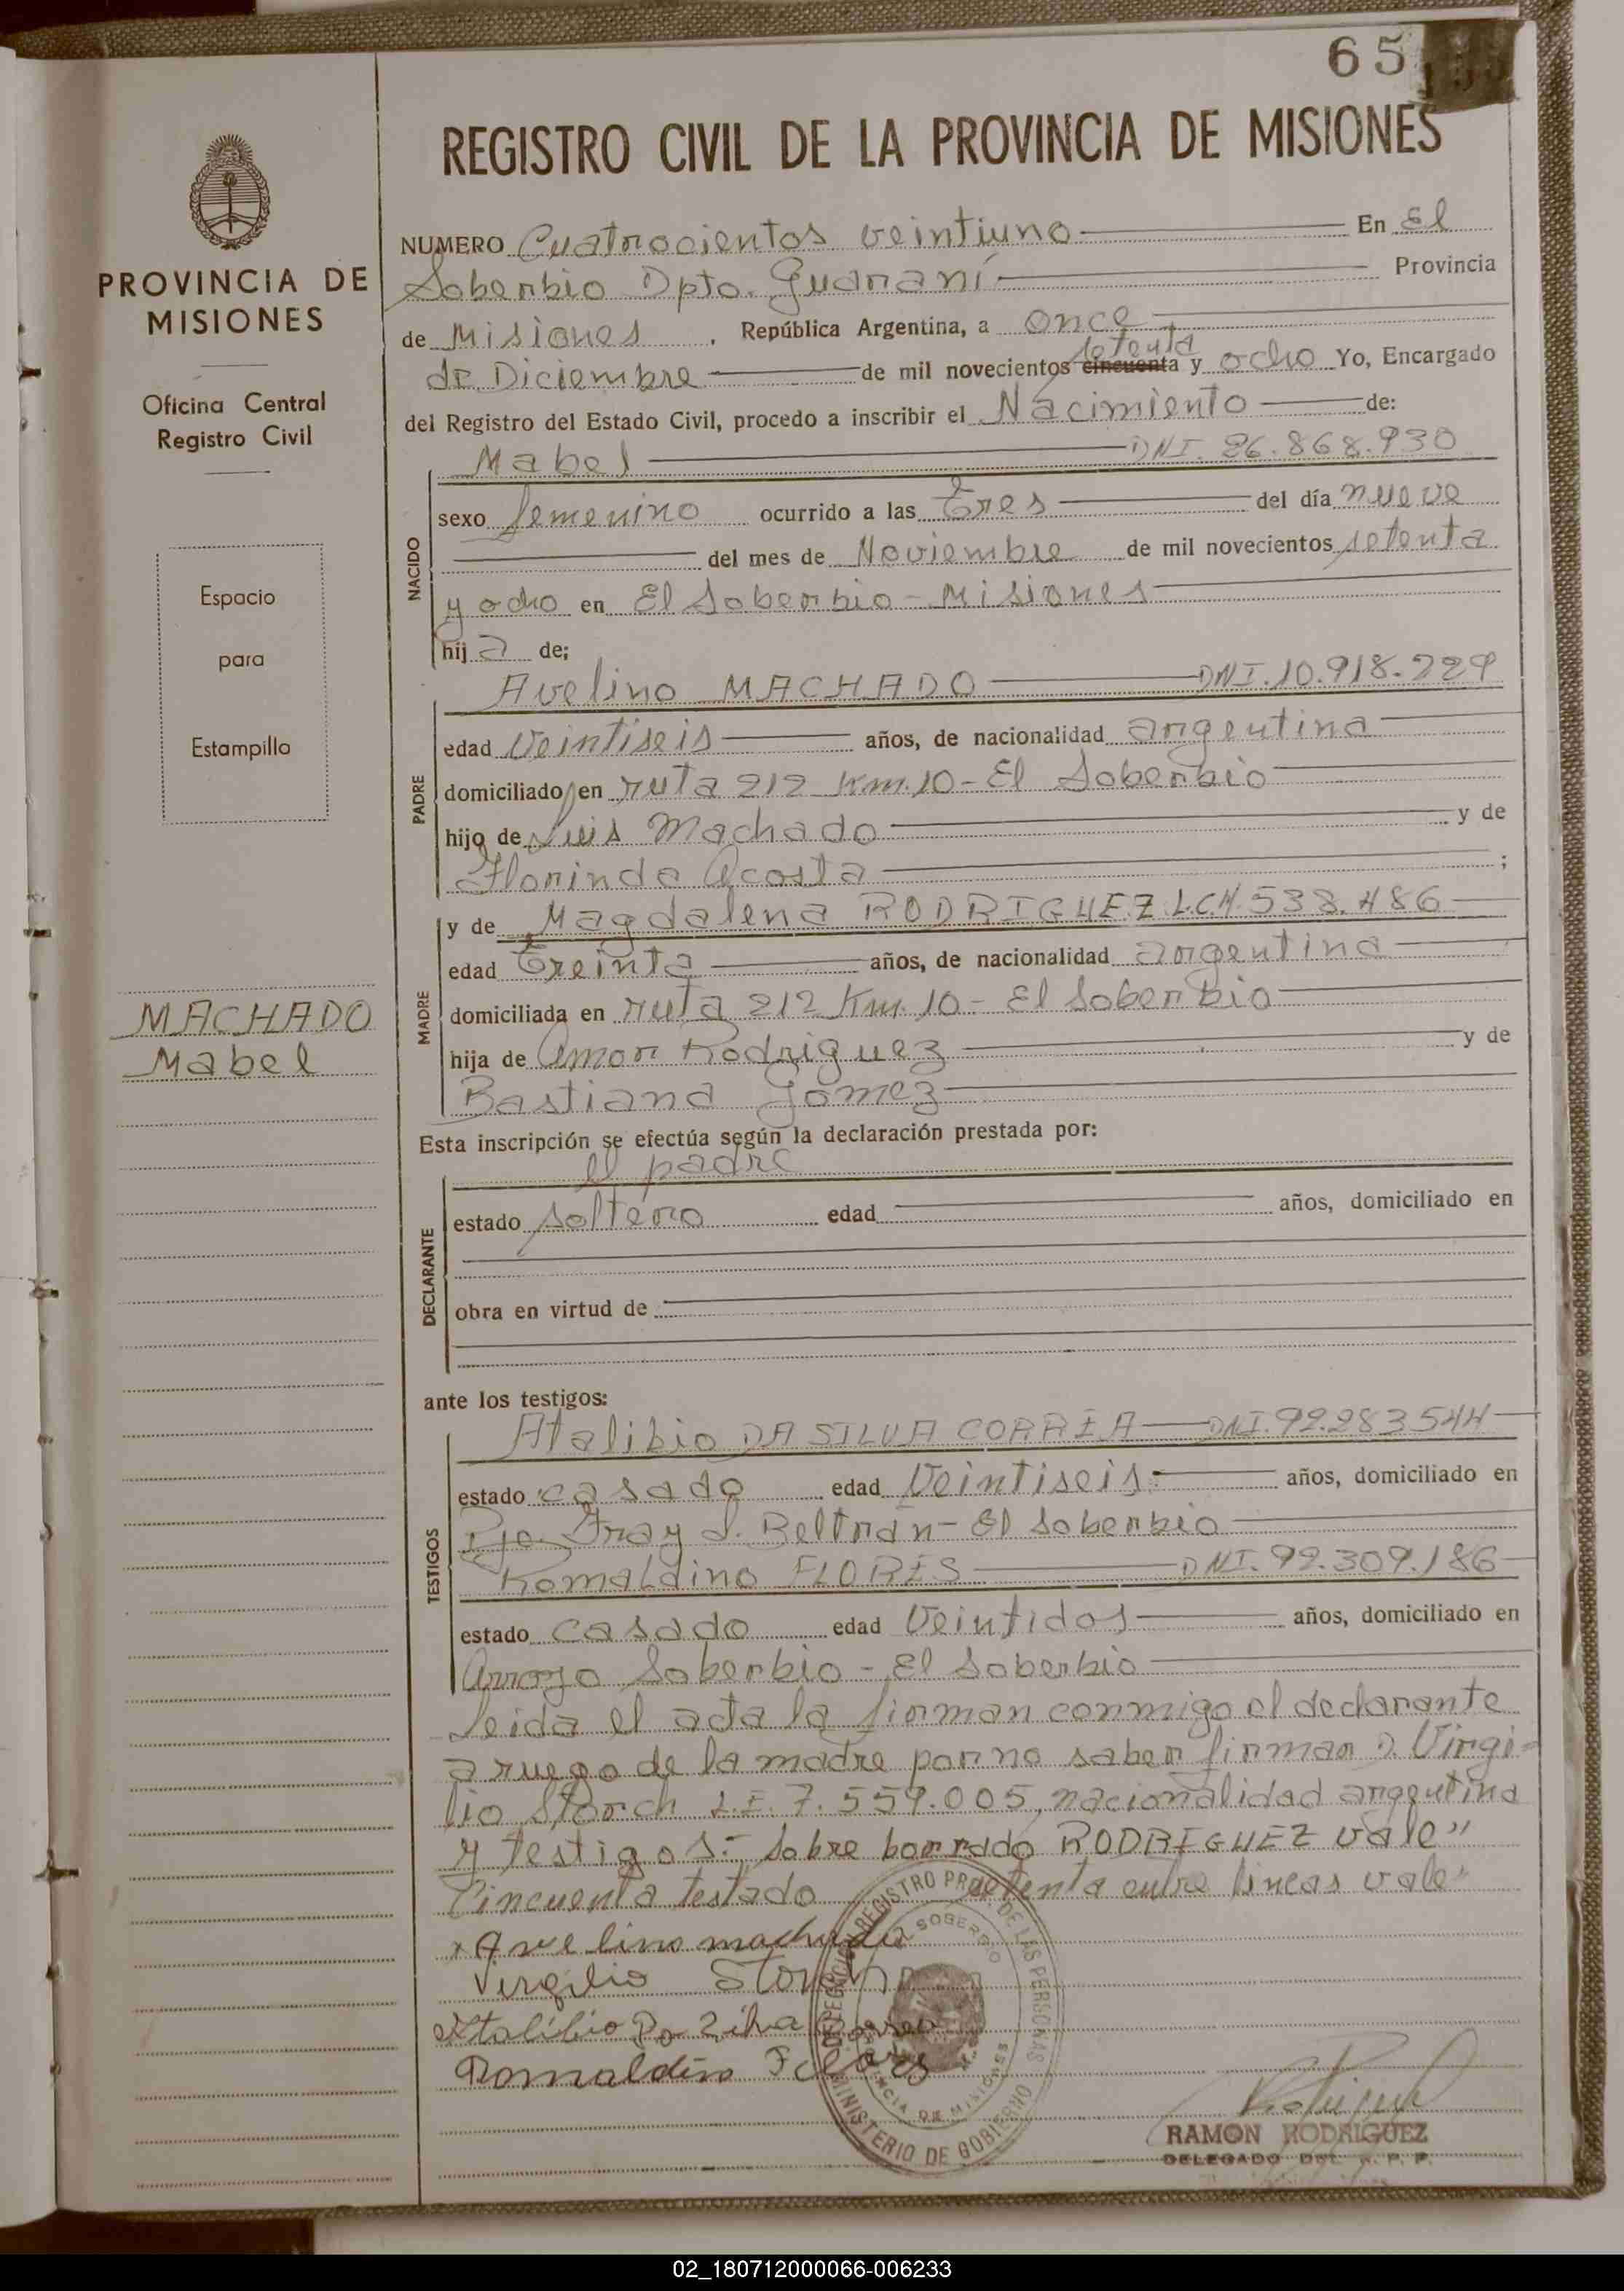 65
REGISTRO CIVIL DE LA PROVINCIA DE MISIONES
NUMERO Cuatrocientos veintiuno En El
Soberbio Dpto. Guaraní Provincia
de Misiones . República Argentina, a once
de Diciembre de mil novecientos cincuenta setenta y ocho Yo, Encargado
del Registro del Estado Civil, procedo a inscribir el Nacimiento de:
Mabel DNI. 26.868.930
NACIDO
sexo femenino ocurrido a las tres del día nueve
del mes de Noviembre de mil novecientos setenta
y ocho en El Soberbio - Misiones
hij a de;
Avelino MACHADO DNI. 10.918.229
PADRE
edad veintiseis años, de nacionalidad argentina
domiciliado en ruta 212 Km. 10 - El Soberbio
hijo de Luis Machado y de
Florinda Acosta ;
y de Magdalena RODRIGUEZ L.C.4.538.486
MADRE
edad treinta años, de nacionalidad argentina
domiciliada en ruta 212 Km. 10 - El Soberbio
hija de Amor Rodriguez y de
Bastiana Gomez
Esta inscripción se efectúa según la declaración prestada por:
el padre
DECLARANTE
estado soltero edad años, domiciliado en
obra en virtud de
ante los testigos:
Atalibio DA SILVA CORREA DNI. 92.283544
TESTIGOS
estado casado edad Veintiseis años, domiciliado en
Pje. Fray L. Beltrán - El Soberbio
Romaldino FLORES DNI. 92.309.186
estado casado edad Veintidos años, domiciliado en
Arroyo Soberbio - El Soberbio
Leida el acta la firman conmigo el declarante
a ruego de la madre por no saber firmar D. Virgi-
lio Storch L.E. 7.559.005, nacionalidad argentina
y testigos.- Sobre borrado RODRIGUEZ vale"
Cincuenta testado setenta entre lineas vale"
x Avelino machado
Virgilio Storch
Atalibio Da Silva Correa
Romaldino Flores
REGISTRO PROV. DE LAS PERSONAS
SOBERBIO
PROVINCIA DE MISIONES
MINISTERIO DE GOBIERNO
RAMON RODRIGUEZ
DELEGADO DEL R. P. P.
PROVINCIA DE
MISIONES
Oficina Central
Registro Civil
Espacio
para
Estampilla
MACHADO
Mabel
02_180712000066-006233